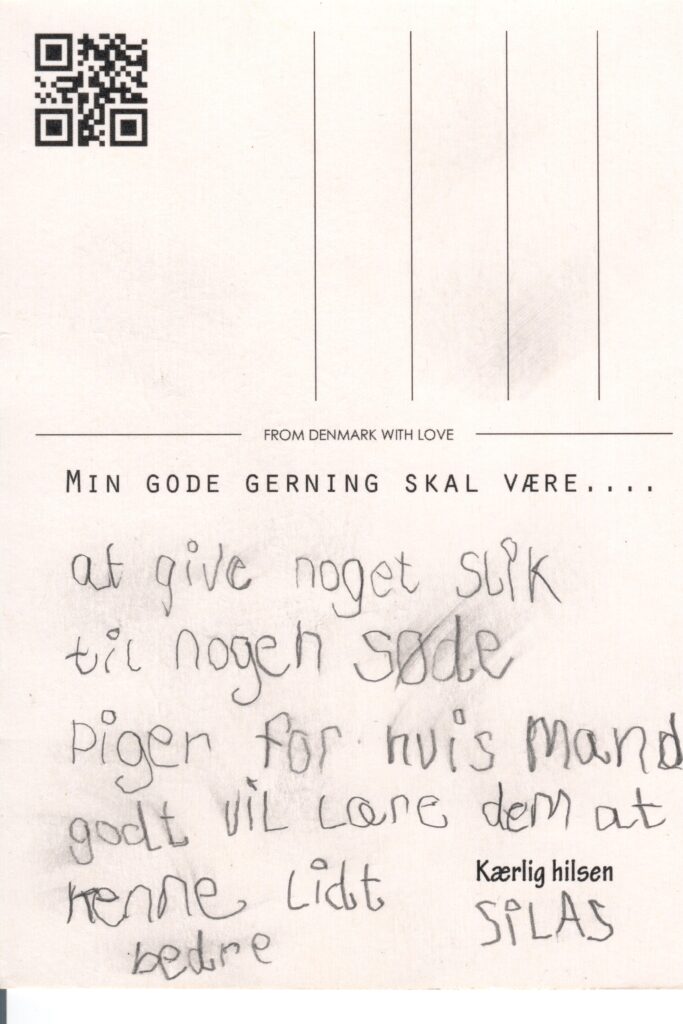 FROM DENMARK WITH LOVE
MIN GODE GERNING SKAL VÆRE....
at give noget SLiK
til nogen søde
piger for hvis Mand
godt ViL Lære dem at
Kenne Lidt
bedre
Kærlig hilsen
SiLAS